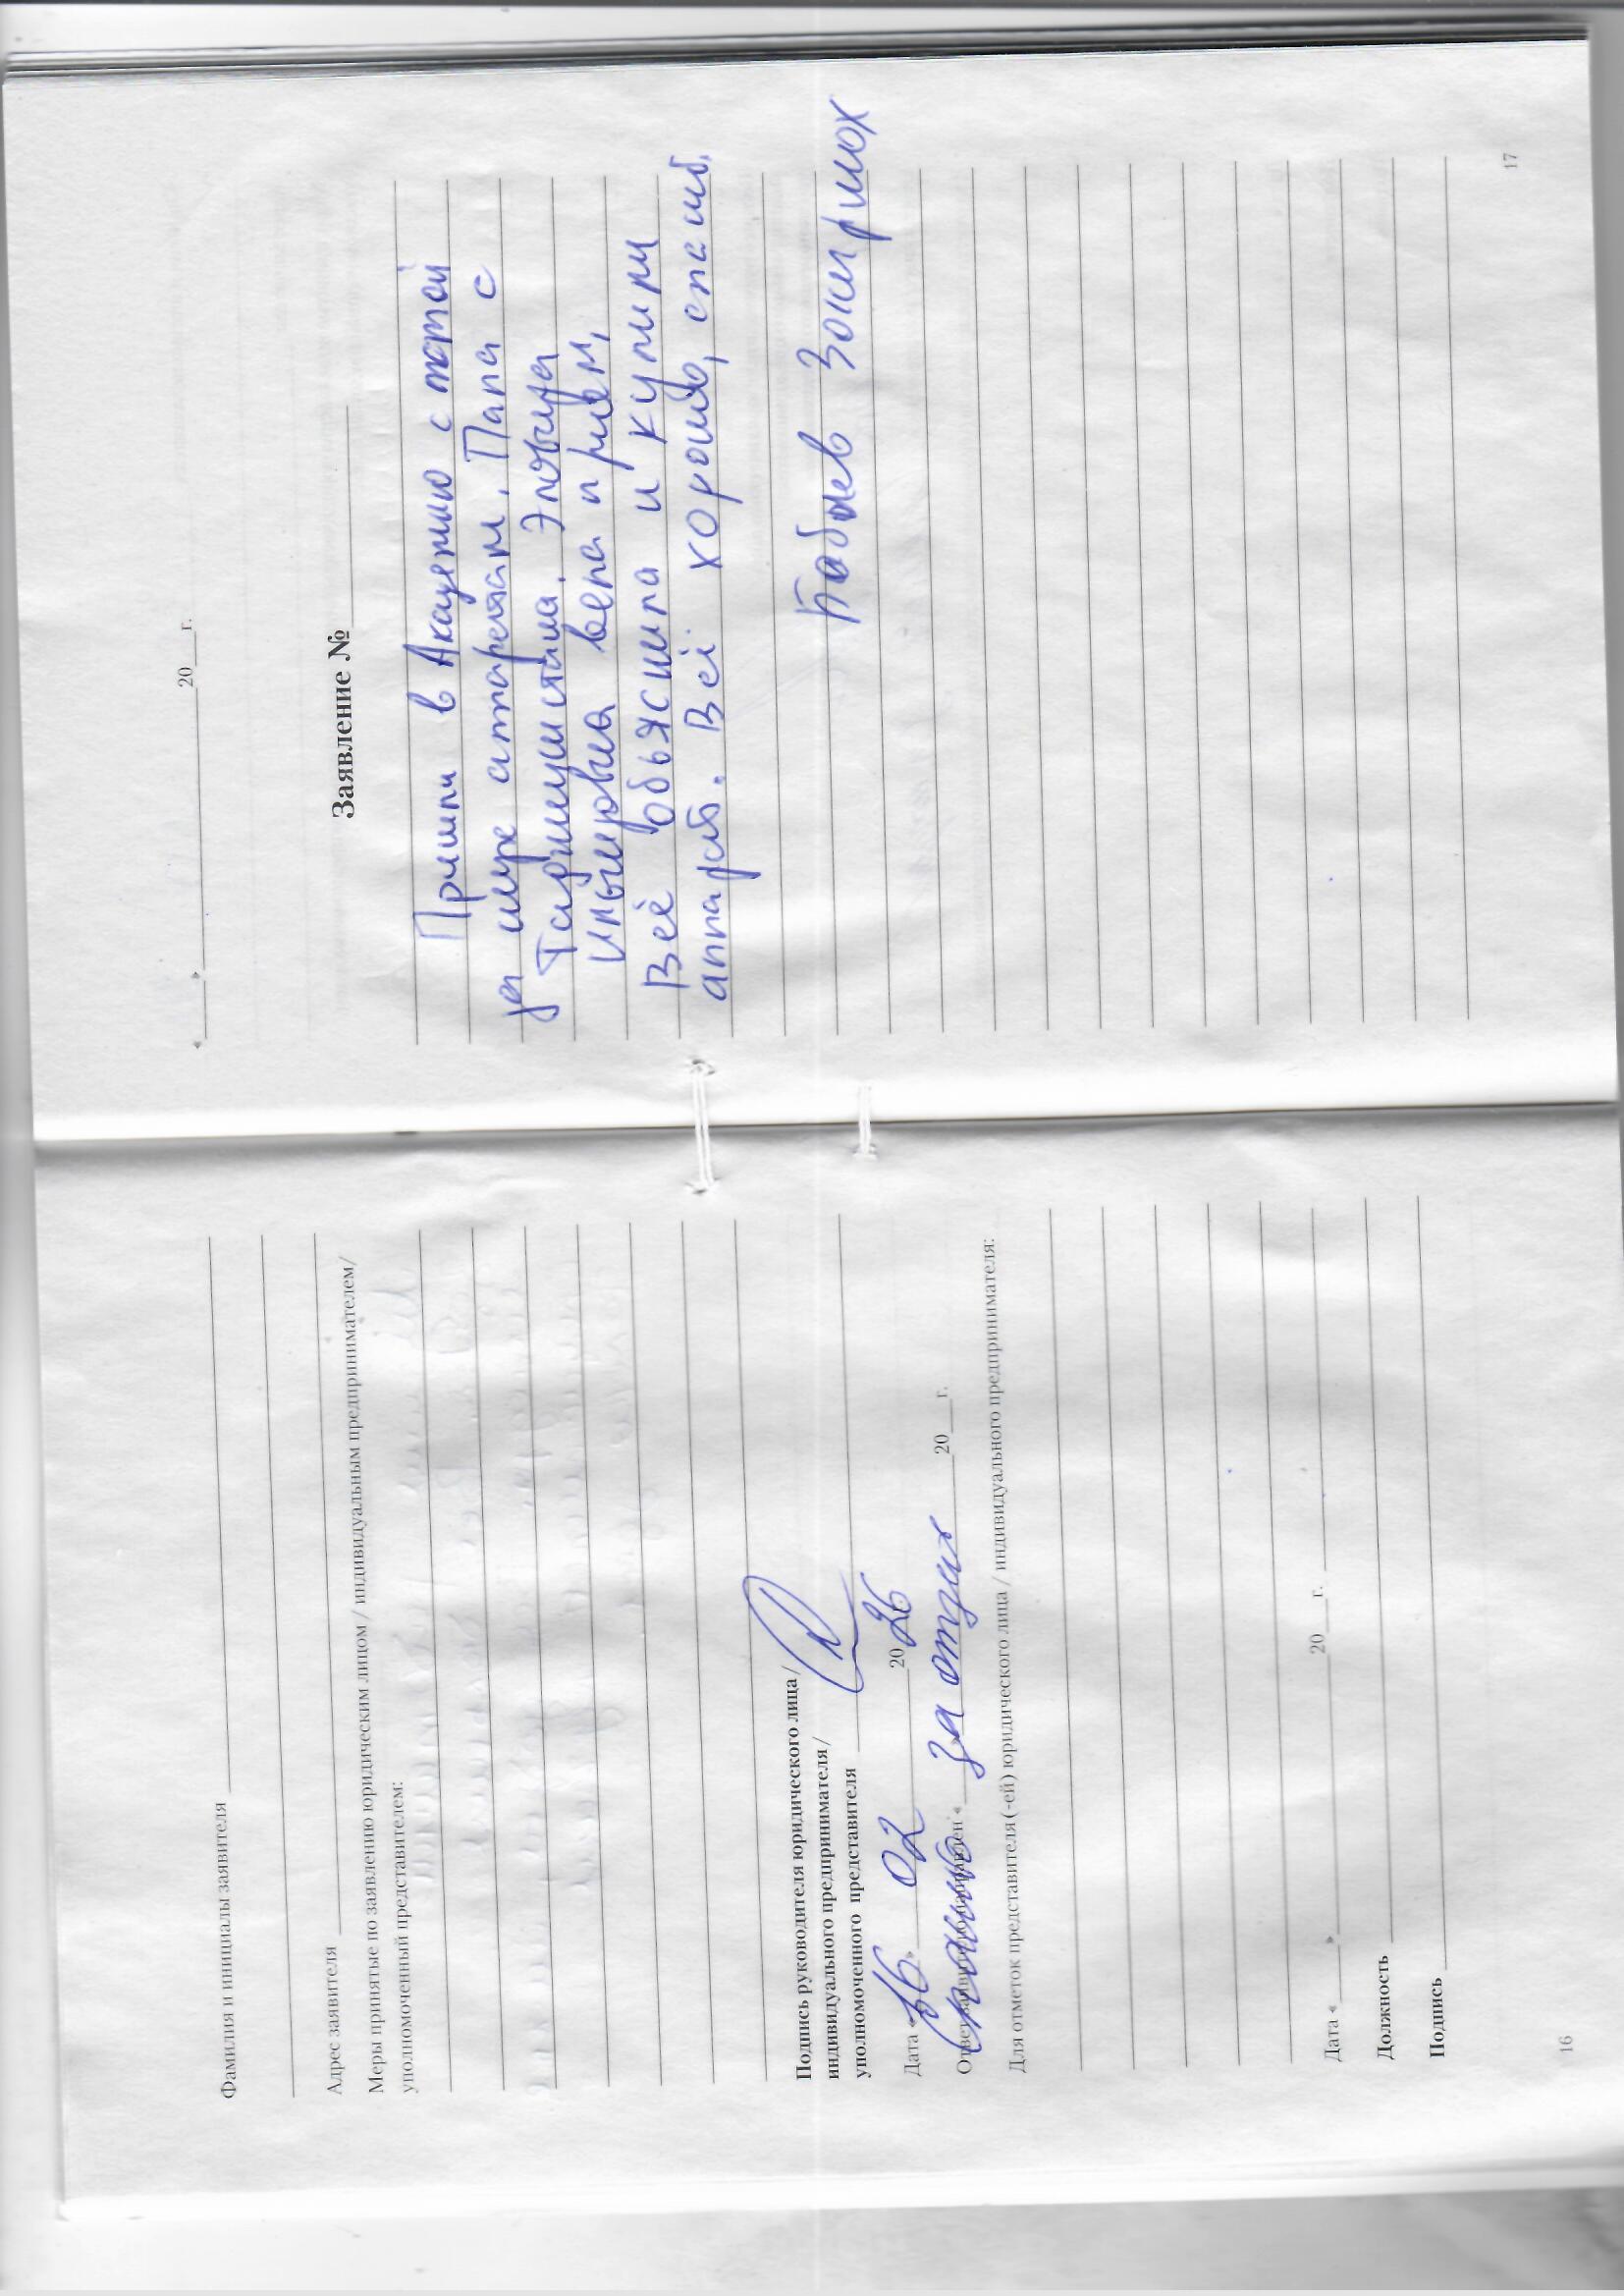 Фамилия и инициалы заявителя
Адрес заявителя
Меры принятые по заявлению юридическим лицом / индивидуальным предпринимателем/
уполномоченный представителем:
Подпись руководителя юридического лица/
индивидуального предпринимателя/
уполномоченного представителя
Дата «16» 02 2026
Ответ заявителю направлен: «    20    г.
Спасибо за отзыв
Для отметок представителя(-ей) юридического лица / индивидуального предпринимателя:
Дата «    »    20    г.
Должность
Подпись
16
«    »    20    г.
Заявление №
Пришли в Академию с папой
за слух аппаратам. Папа с
Эльвира
Ильгировна вела прием,
Всё обьяснила и купили
аппарат. Всё хорошо, спасиб.
Бабыев Зокиржох
17